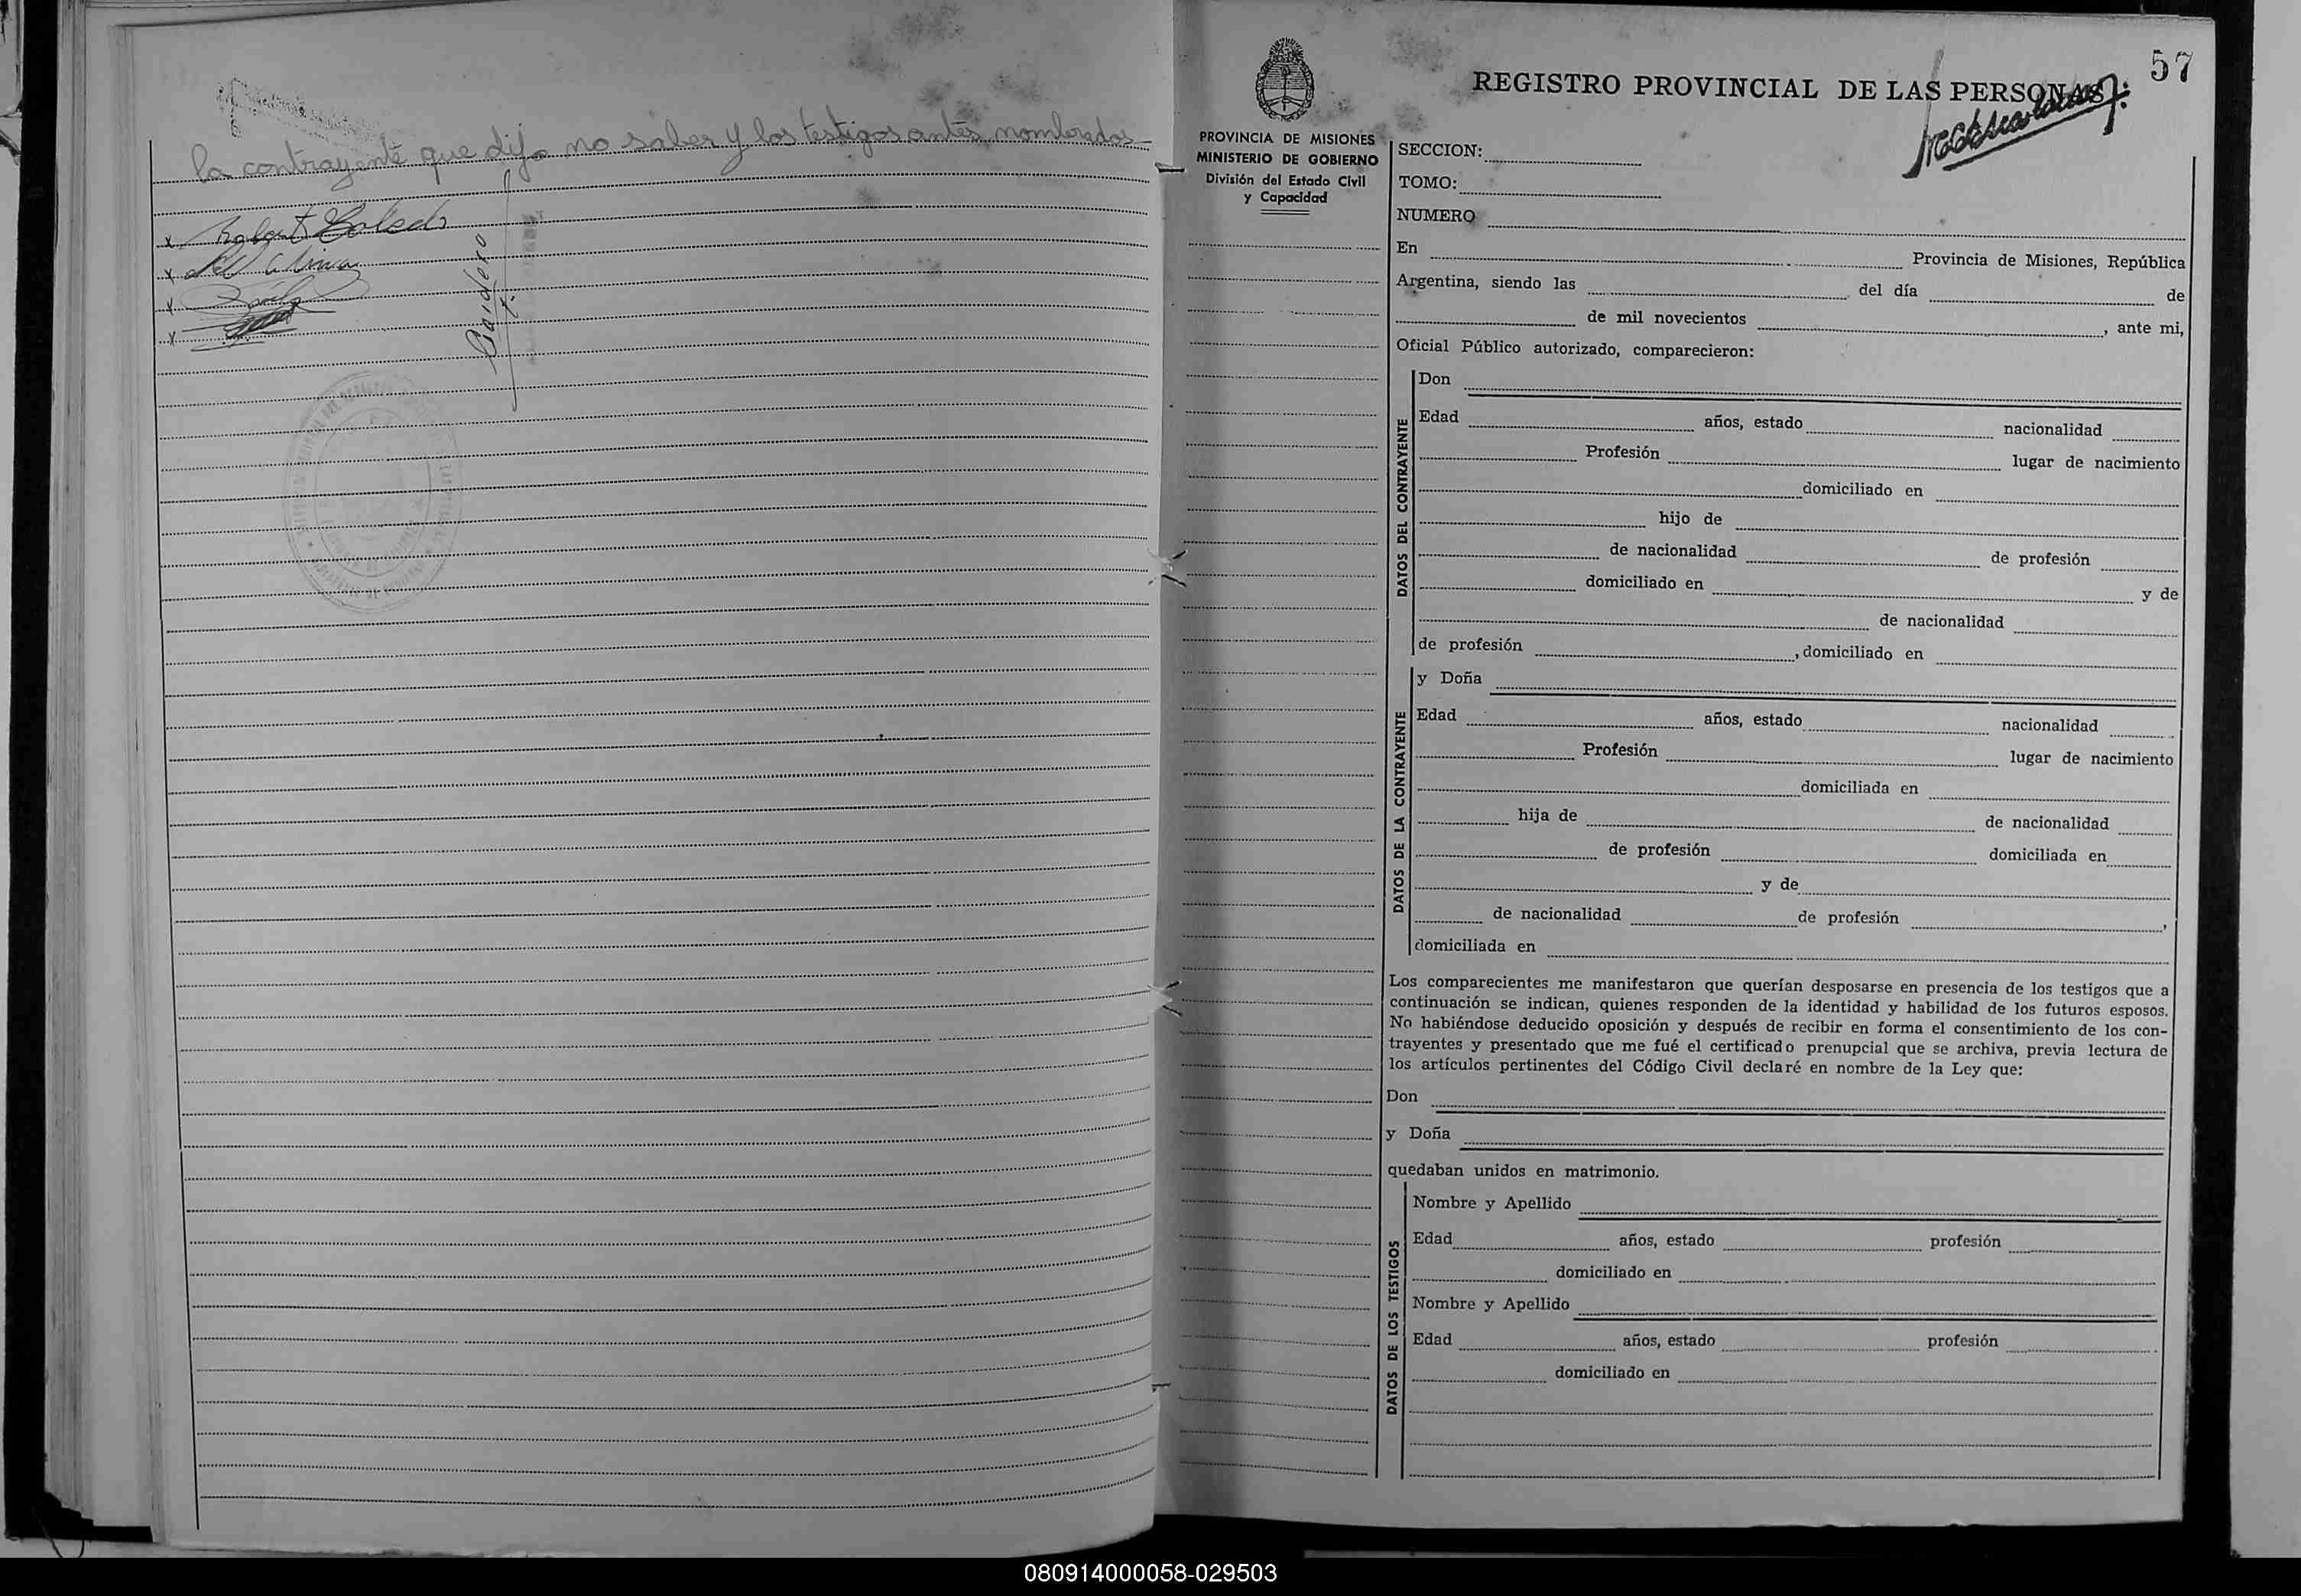 la contrayente que dijo no saber y los testigos antes nombrados
57
REGISTRO PROVINCIAL DE LAS PERSONAS
PROVINCIA DE MISIONES
MINISTERIO DE GOBIERNO
División del Estado Civil
y Capacidad
SECCION:
TOMO:
NUMERO
En Provincia de Misiones, República
Argentina, siendo las del día de
de mil novecientos , ante mi,
Oficial Público autorizado, comparecieron:
DATOS DEL CONTRAYENTE
Don
Edad años, estado nacionalidad
Profesión lugar de nacimiento
domiciliado en
hijo de
de nacionalidad de profesión
domiciliado en y de
de nacionalidad
de profesión , domiciliado en
DATOS DE LA CONTRAYENTE
y Doña
Edad años, estado nacionalidad
Profesión lugar de nacimiento
domiciliada en
hija de de nacionalidad
de profesión domiciliada en
y de
de nacionalidad de profesión ,
domiciliada en
Los comparecientes me manifestaron que querían desposarse en presencia de los testigos que a
continuación se indican, quienes responden de la identidad y habilidad de los futuros esposos.
No habiéndose deducido oposición y después de recibir en forma el consentimiento de los con-
trayentes y presentado que me fué el certificado prenupcial que se archiva, previa lectura de
los artículos pertinentes del Código Civil declaré en nombre de la Ley que:
Don
y Doña
quedaban unidos en matrimonio.
DATOS DE LOS TESTIGOS
Nombre y Apellido
Edad años, estado profesión
domiciliado en
Nombre y Apellido
Edad años, estado profesión
domiciliado en
080914000058-029503